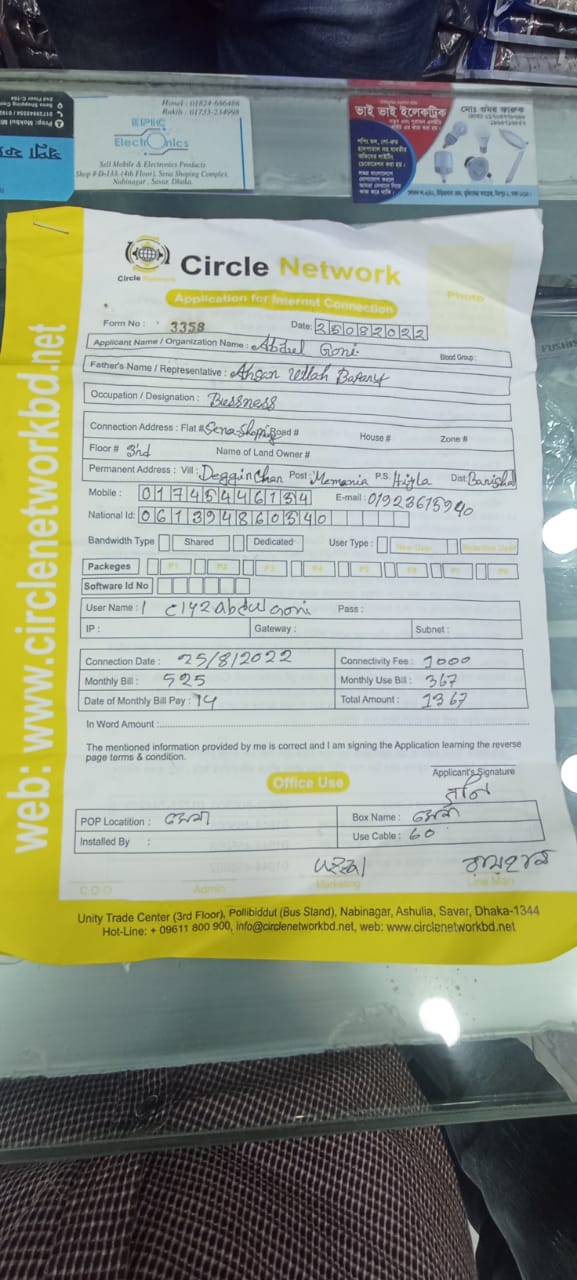 Himel : 01824-686486
Rakib : 01733-234998
EPIC
ElectrOnics
Sell Mobile & Electronics Products
Shop # D-133, (4th Floor), Sena Shoping Complex,
Nabinagar, Savar, Dhaka.
ভাই ভাই ইলেকট্রিক
মোঃ ওমর ফারুক
Circle Network
Circle Network
Application for Internet Connection
Photo
Form No : 3358
Date: 25082022
Applicant Name / Organization Name : Abdul Goni
Blood Group :
Father's Name / Representative : Ahsan Ullah
Occupation / Designation : Bussness
Connection Address : Flat # Sena Shoping Road # House # Zone #
Floor # 3rd Name of Land Owner #
Permanent Address : Vill : Post : Memania P.S. Hijla Dist: Barishal
Mobile : 01745446134 E-mail : 01923615940
National Id: 061394860540
Bandwidth Type Shared Dedicated User Type : New User Reactive User
Packeges P1 P2 P3 P4 P5 P6 P7 P8
Software Id No
User Name : c142abdulgoni Pass :
IP : Gateway : Subnet :
Connection Date : 25/8/2022 Connectivity Fee : 1000
Monthly Bill : 525 Monthly Use Bill : 367
Date of Monthly Bill Pay : 14 Total Amount : 1367
In Word Amount :
The mentioned information provided by me is correct and I am signing the Application learning the reverse
page terms & condition.
Applicant's Signature
গনি
Office Use
POP Locatition : সেনা Box Name : সেনা
Installed By : Use Cable : 60
C.O.O Admin Marketing Line Man
Unity Trade Center (3rd Floor), Pollibiddut (Bus Stand), Nabinagar, Ashulia, Savar, Dhaka-1344
Hot-Line: + 09611 800 900, info@circlenetworkbd.net, web: www.circlenetworkbd.net
web: www.circlenetworkbd.net